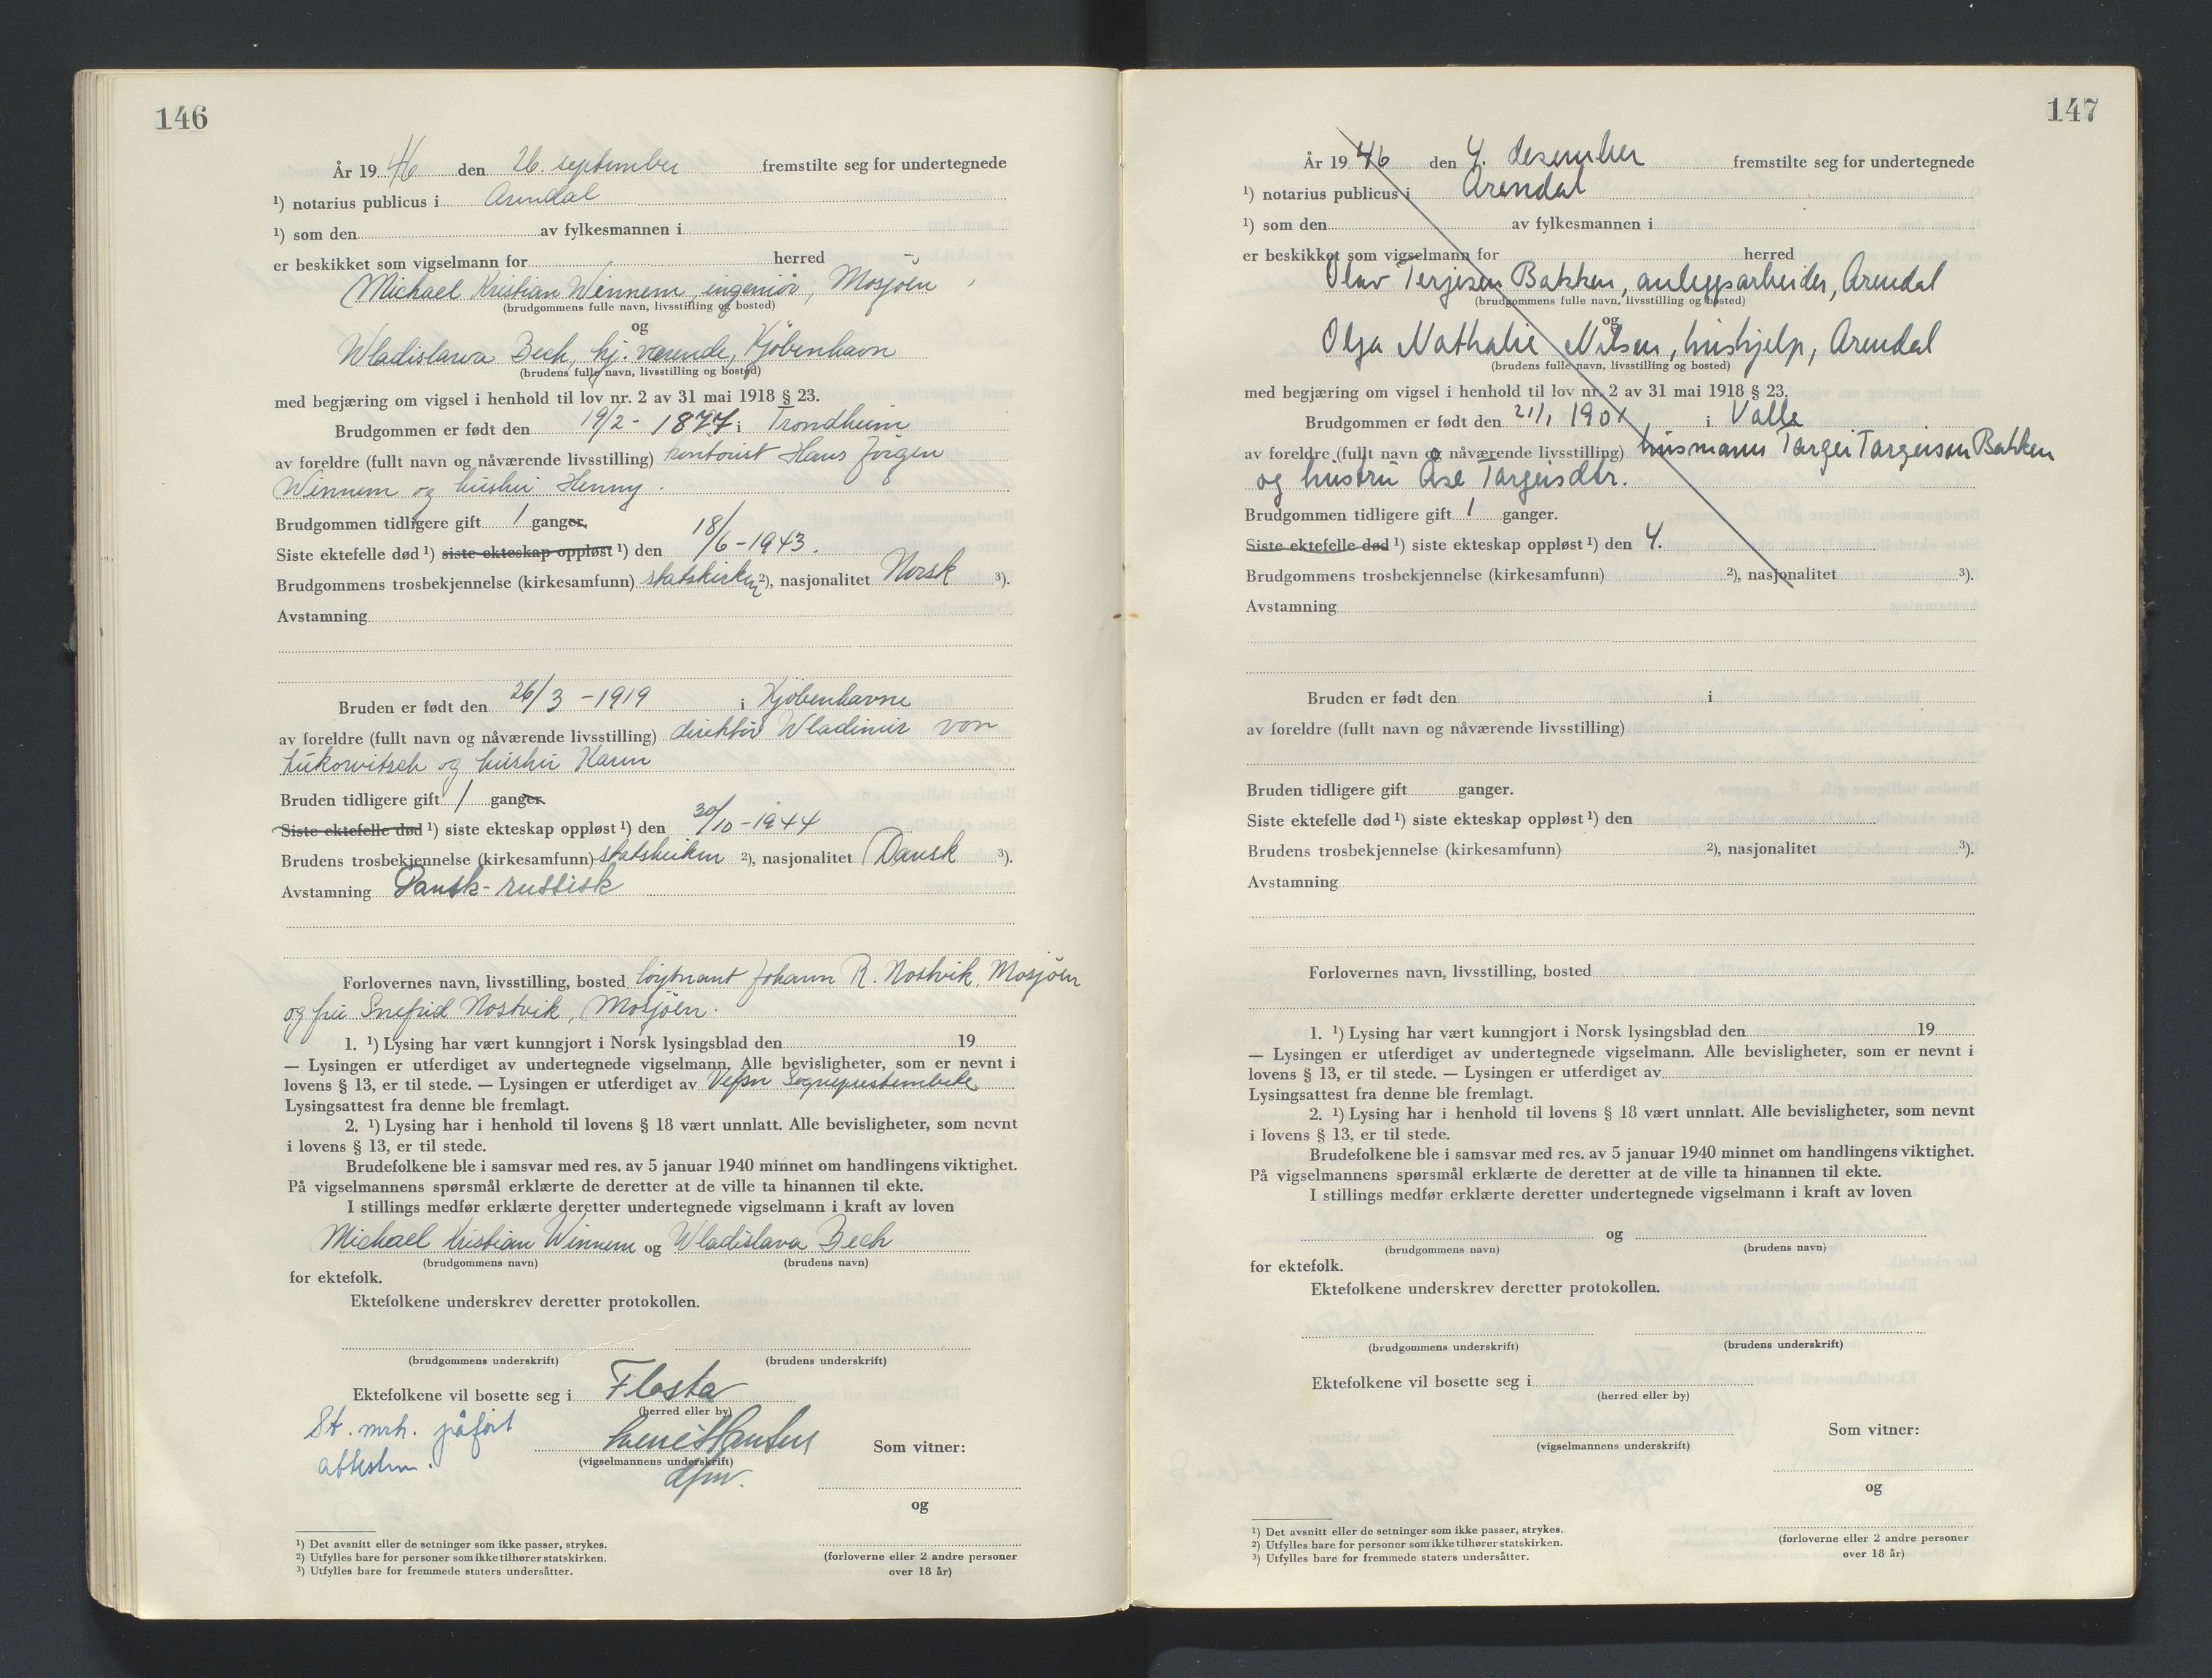 146
År 19 46 den 26. september fremstilte seg for undertegnede
¹) notarius publicus i Arendal
¹) som den av fylkesmannen i
er beskikket som vigselmann for herred
Michael Kristian Winnem, ingeniör, Mosjöen,
(brudgommens fulle navn, livsstilling og bosted)
og
Wladislawa Bech, hj. værende, Kjöbenhavn
(brudens fulle navn, livsstilling og bosted)
med begjæring om vigsel i henhold til lov nr. 2 av 31 mai 1918 § 23.
Brudgommen er født den 19/2 - 1877 i Trondheim
av foreldre (fullt navn og nåværende livsstilling) kontorist Hans Jörgen
Winnem og hustru Henny.
Brudgommen tidligere gift 1 ganger.
Siste ektefelle død ¹) siste ekteskap oppløst ¹) den 18/6 - 1943.
Brudgommens trosbekjennelse (kirkesamfunn) statskirken ²), nasjonalitet Norsk ³).
Avstamning
Bruden er født den 26/3 - 1919 i Kjöbenhavne
av foreldre (fullt navn og nåværende livsstilling) direktör Wladimir von
Lukowitsch og hustru Karen
Bruden tidligere gift 1 ganger.
Siste ektefelle død ¹) siste ekteskap oppløst ¹) den 30/10 - 1944
Brudens trosbekjennelse (kirkesamfunn) statskirken ²), nasjonalitet Dansk ³).
Avstamning Dansk-russisk
Forlovernes navn, livsstilling, bosted löytnant Johann R. Nostvik, Mosjöen
og fru Snefrid Nostvik, Mosjöen.
1. ¹) Lysing har vært kunngjort i Norsk lysingsblad den 19
— Lysingen er utferdiget av undertegnede vigselmann. Alle bevisligheter, som er nevnt i
lovens § 13, er til stede. — Lysingen er utferdiget av Vefsn Sogneprestembete
Lysingsattest fra denne ble fremlagt.
2. ¹) Lysing har i henhold til lovens § 18 vært unnlatt. Alle bevisligheter, som nevnt
i lovens § 13, er til stede.
Brudefolkene ble i samsvar med res. av 5 januar 1940 minnet om handlingens viktighet.
På vigselmannens spørsmål erklærte de deretter at de ville ta hinannen til ekte.
I stillings medfør erklærte deretter undertegnede vigselmann i kraft av loven
Michael Kristian Winnem og Wladislava Bech
(brudgommens navn) (brudens navn)
for ektefolk.
Ektefolkene underskrev deretter protokollen.
(brudgommens underskrift) (brudens underskrift)
Ektefolkene vil bosette seg i Flosta
(herred eller by)
St. mrk. påfört
attesten.
(vigselmannens underskrift)
dfm.
Som vitner:
og
(forloverne eller 2 andre personer
over 18 år)
¹) Det avsnitt eller de setninger som ikke passer, strykes.
²) Utfylles bare for personer som ikke tilhører statskirken.
³) Utfylles bare for fremmede staters undersåtter.
147
År 19 46 den 4. desember fremstilte seg for undertegnede
¹) notarius publicus i Arendal
¹) som den av fylkesmannen i
er beskikket som vigselmann for herred
Olav Terjesen Bakken, anleggsarbeider, Arendal
(brudgommens fulle navn, livsstilling og bosted)
og
Olga Nathalie Nilsen, hushjelp, Arendal
(brudens fulle navn, livsstilling og bosted)
med begjæring om vigsel i henhold til lov nr. 2 av 31 mai 1918 § 23.
Brudgommen er født den 21/1 1901 i Valle
av foreldre (fullt navn og nåværende livsstilling) husmann Targei Targeison Bakken
og hustru Åse Targeisdtr.
Brudgommen tidligere gift 1 ganger.
Siste ektefelle død ¹) siste ekteskap oppløst ¹) den 4.
Brudgommens trosbekjennelse (kirkesamfunn) ²), nasjonalitet ³).
Avstamning
Bruden er født den i
av foreldre (fullt navn og nåværende livsstilling)
Bruden tidligere gift ganger.
Siste ektefelle død ¹) siste ekteskap oppløst ¹) den
Brudens trosbekjennelse (kirkesamfunn) ²), nasjonalitet ³).
Avstamning
Forlovernes navn, livsstilling, bosted
1. ¹) Lysing har vært kunngjort i Norsk lysingsblad den 19
— Lysingen er utferdiget av undertegnede vigselmann. Alle bevisligheter, som er nevnt i
lovens § 13, er til stede. — Lysingen er utferdiget av
Lysingsattest fra denne ble fremlagt.
2. ¹) Lysing har i henhold til lovens § 18 vært unnlatt. Alle bevisligheter, som nevnt
i lovens § 13, er til stede.
Brudefolkene ble i samsvar med res. av 5 januar 1940 minnet om handlingens viktighet.
På vigselmannens spørsmål erklærte de deretter at de ville ta hinannen til ekte.
I stillings medfør erklærte deretter undertegnede vigselmann i kraft av loven
og
(brudgommens navn) (brudens navn)
for ektefolk.
Ektefolkene underskrev deretter protokollen.
(brudgommens underskrift) (brudens underskrift)
Ektefolkene vil bosette seg i
(herred eller by)
(vigselmannens underskrift)
Som vitner:
og
(forloverne eller 2 andre personer
over 18 år)
¹) Det avsnitt eller de setninger som ikke passer, strykes.
²) Utfylles bare for personer som ikke tilhører statskirken.
³) Utfylles bare for fremmede staters undersåtter.